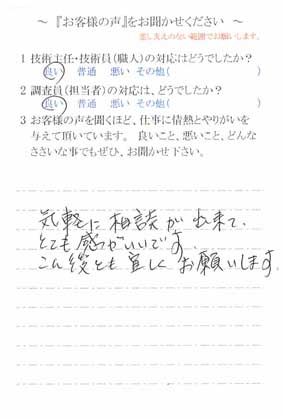 ～ 『お客様の声』をお聞かせください ～
差し支えのない範囲でお願いします。
1 技術主任・技術員(職人)の対応はどうでしたか?
良い 普通 悪い その他( )
2 調査員(担当者)の対応は、どうでしたか?
良い 普通 悪い その他( )
3 お客様の声を聞くほど、仕事に情熱とやりがいを
与えて頂いています。 良いこと、悪いこと、どんな
ささいな事でもぜひ、お聞かせ下さい。
気軽に相談が出来て、
とても感じがいいです。
こん後とも宜しくお願いします。